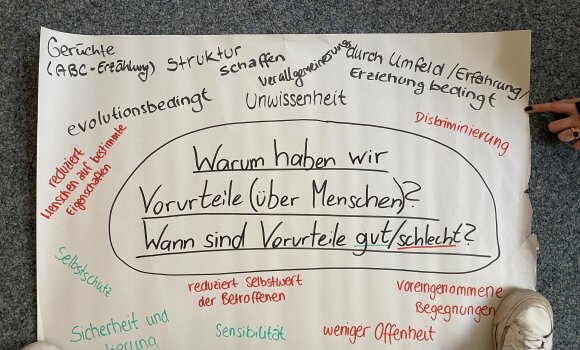 Gerüchte
(ABC-Erzählung)
Struktur
schaffen
Verallgemeinerung
durch Umfeld/Erfahrung/
Erziehung bedingt
evolutionsbedingt
Unwissenheit
Diskriminierung
reduziert
Menschen auf bestimmte
Eigenschaften
Warum haben wir
Vorurteile (über Menschen)?
Wann sind Vorurteile gut/schlecht?
Selbstschutz
reduziert Selbstwert
der Betroffenen
voreingenommene
Begegnungen
Sicherheit und
Sensibilität
weniger Offenheit